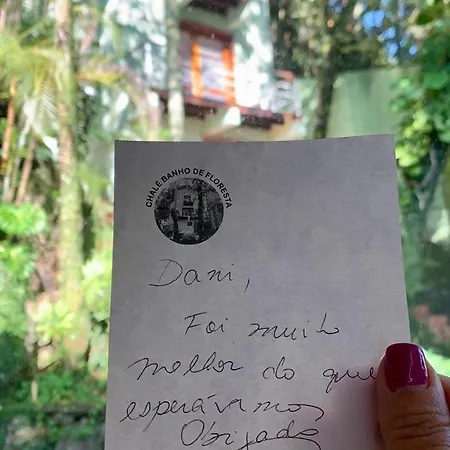 CHALÉ BANHO DE FLORESTA
Dani,
Foi muito
melhor do que
esperávamos
Obrigado